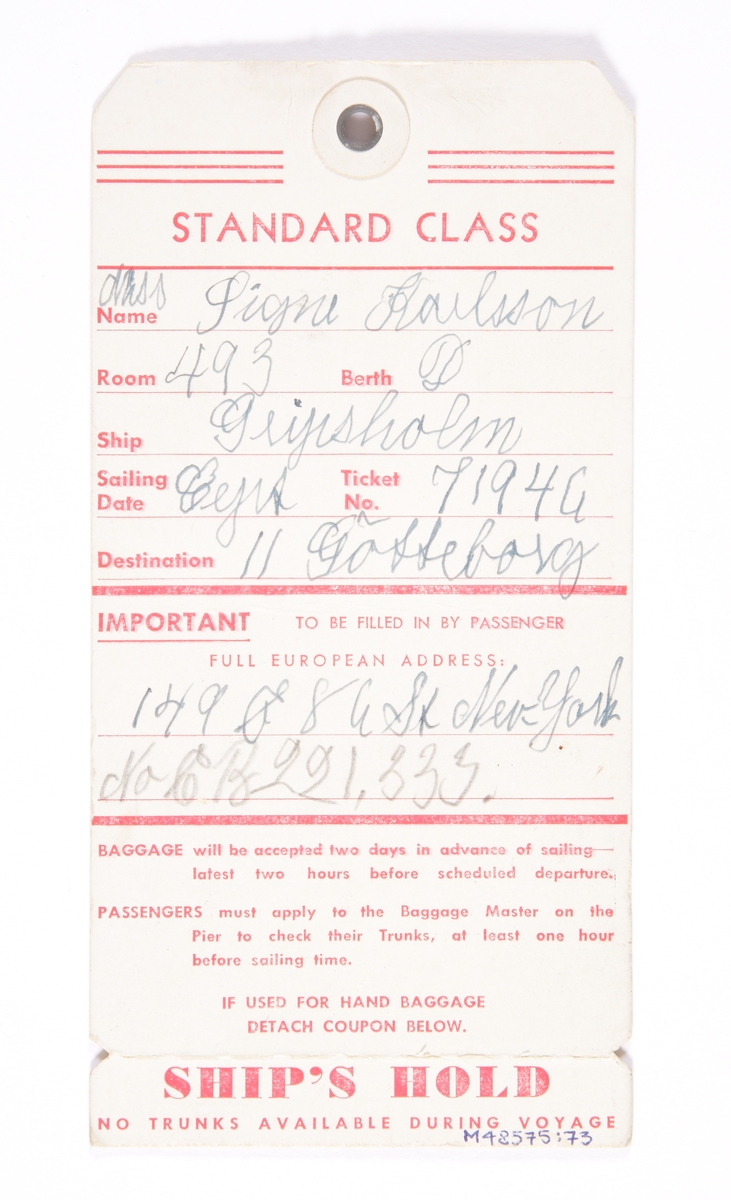 STANDARD CLASS
Miss
Name Signe Karlsson
Room 493 Berth D
Ship Gripsholm
Sailing Date Sept Ticket No. 71946
Destination 11 Götteborg
IMPORTANT TO BE FILLED IN BY PASSENGER
FULL EUROPEAN ADDRESS:
149 E 86 St New-York
No CB221,333.
BAGGAGE will be accepted two days in advance of sailing—
latest two hours before scheduled departure.
PASSENGERS must apply to the Baggage Master on the
Pier to check their Trunks, at least one hour
before sailing time.
IF USED FOR HAND BAGGAGE
DETACH COUPON BELOW.
SHIP'S HOLD
NO TRUNKS AVAILABLE DURING VOYAGE
M48575:73